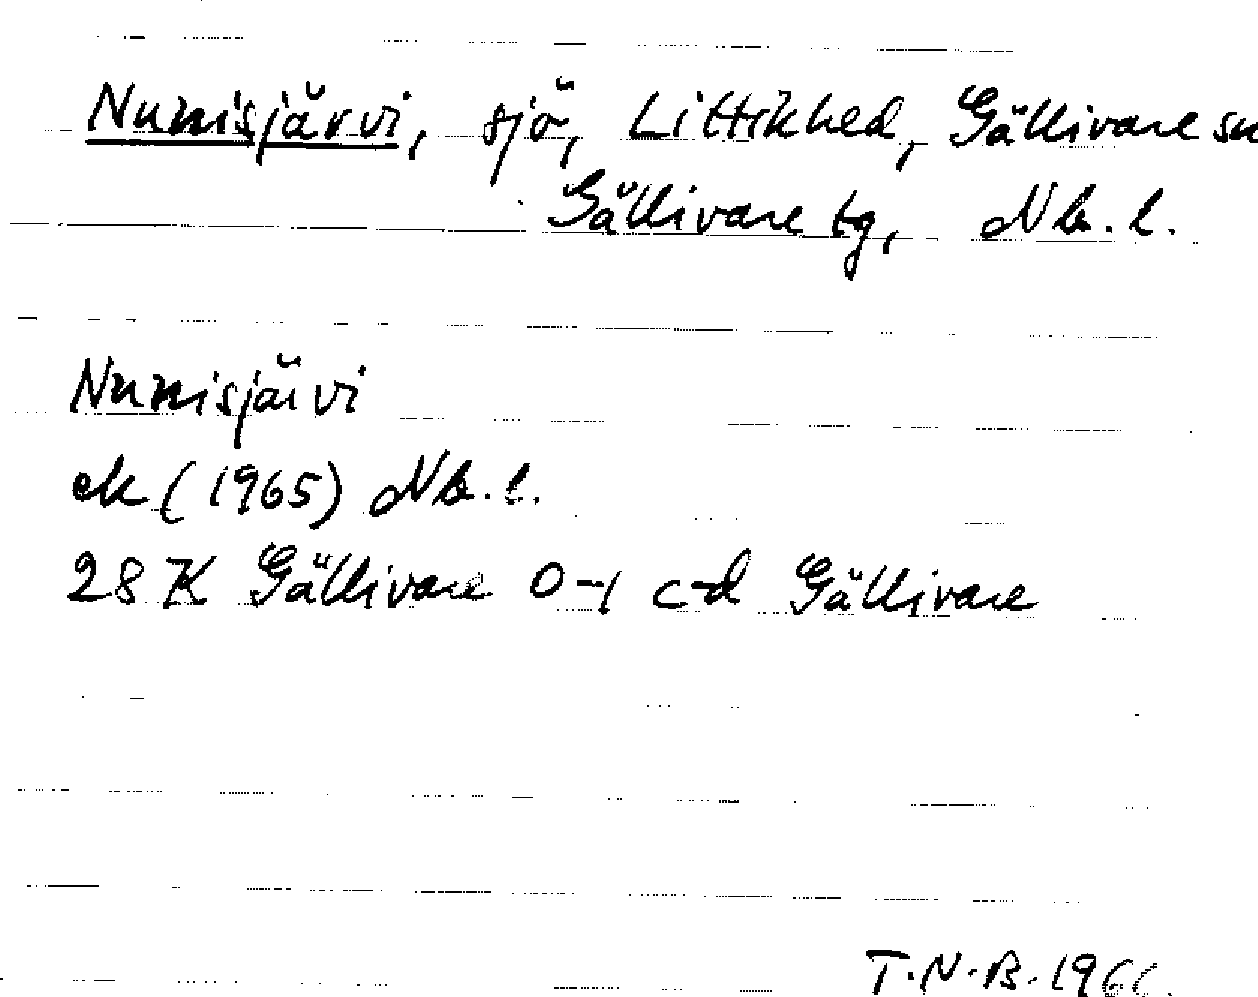 Nunisjärvi, sjö, Littikhed, Gällivare sn
Gällivare tg, Nb. l.
Nunisjärvi
ek (1965) Nb. l.
28 K Gällivare 0-1 c-d Gällivare
T.N.B. 1966.